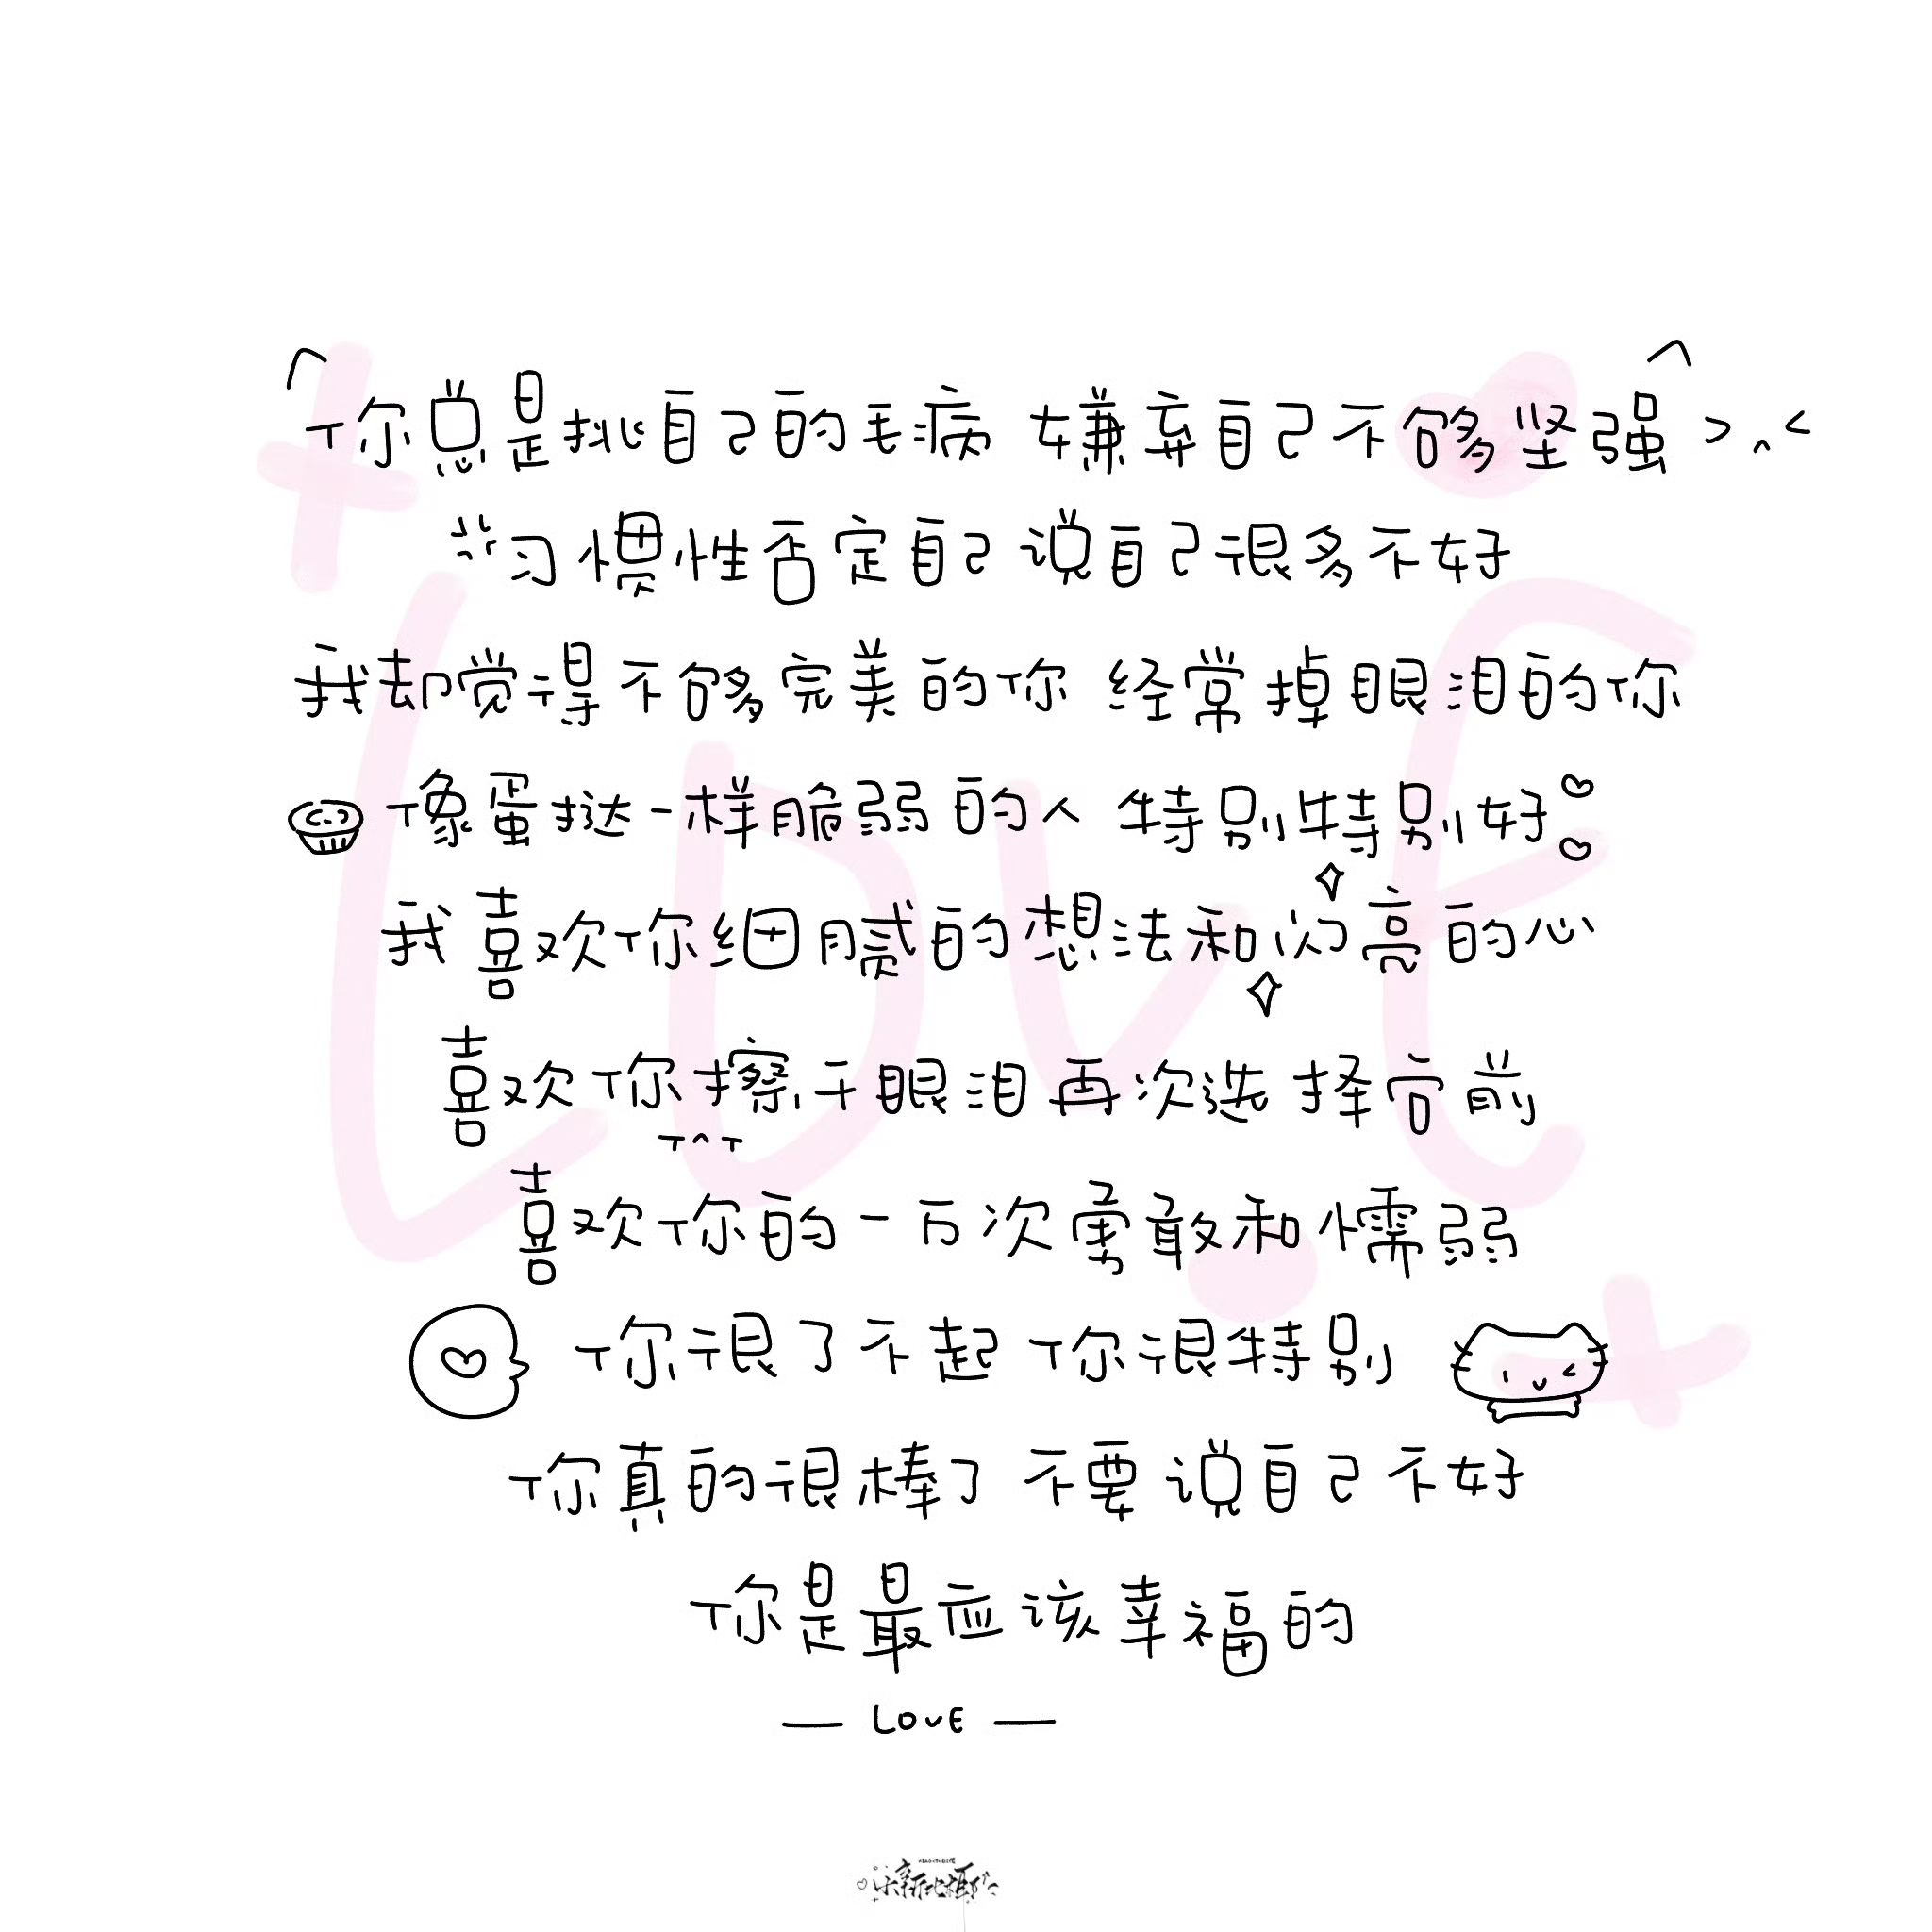 你总是挑自己的毛病 嫌弃自己不够坚强 >^<
习惯性否定自己 说自己很多不好
我却觉得不够完美的你 经常掉眼泪的你
像蛋挞一样脆弱的人 特别特别好
我喜欢你细腻的想法和闪亮的心
喜欢你擦干眼泪再次选择向前
T^T
喜欢你的一万次勇敢和懦弱
你很了不起 你很特别
你真的很棒了 不要说自己不好
你是最应该幸福的
— LOVE —